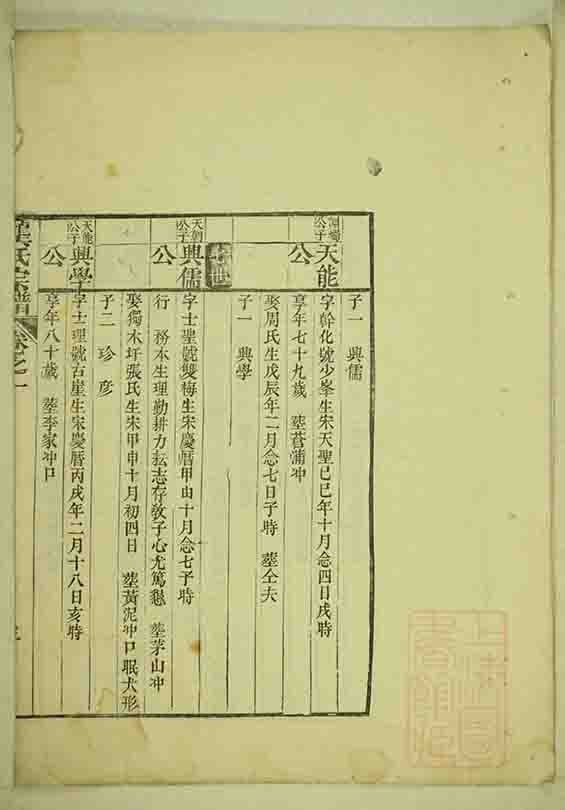 子一 興儒
公子天能公
字幹化號少峯生宋天聖己巳年十月念四日戌時
享年七十九歲 塟菖蒲冲
娶周氏生戊辰年二月念七日子時 塟仝夫
子一 興學
七世
公子興儒公
字士聖號雙梅生宋慶曆甲申十月念七子時
行 務本生理勤耕力耘志存敎子心尤篤懇 塟茅山冲
娶獨木圩張氏生宋甲申十月初四日 塟黃泥冲口眠犬形
子二 珍 彦
天能公子興學公
字士理號右崖生宋慶曆丙戌年二月十八日亥時
享年八十歲 塟李家冲口
氏宗譜 卷之一
上海圖書館藏